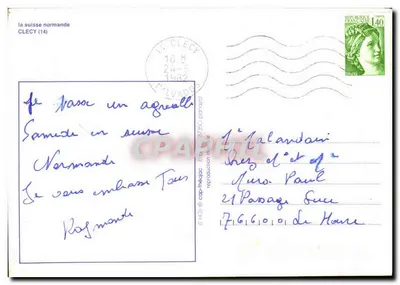 la suisse normande
CLECY (14)
14 CLECY
1982
CALVADOS
REPUBLIQUE FRANCAISE
1,40
Je passe un agréable
Samedi en suisse
Normande
Je vous embrasse Tous
Raymonde
CPAPHIL
Malandain
chez Mr et Me
Paul
21 Passage
76600 Le Havre